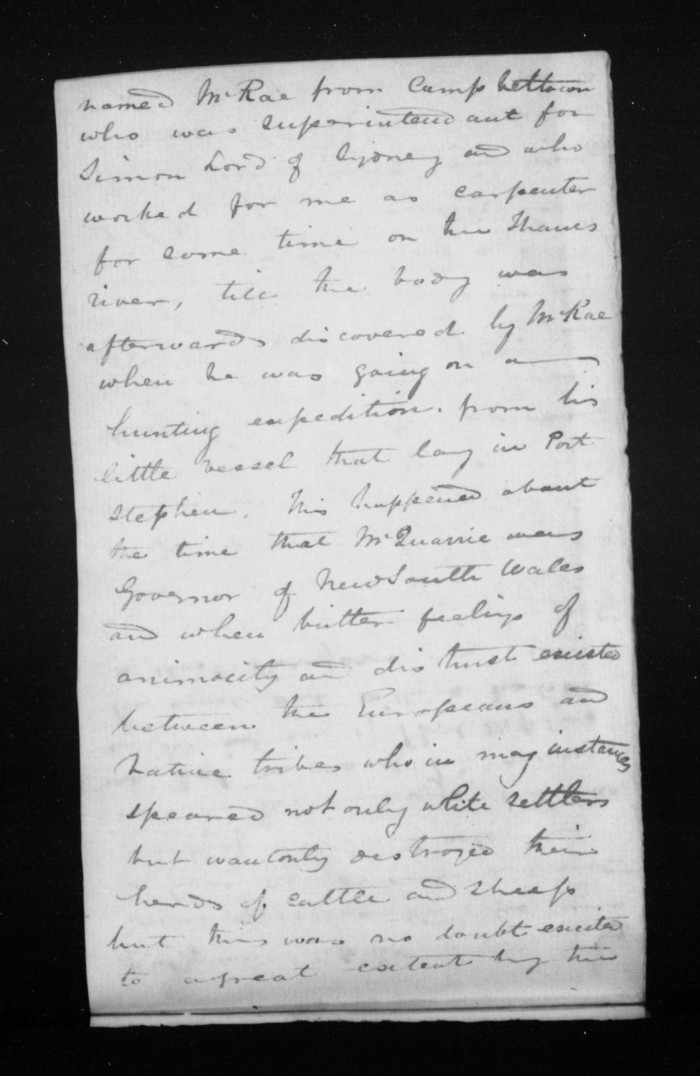 named McRae from Campbelltown
who was superintendant for
Simon Lord of Sydney and who
worked for me as carpenter
for some time on the Thames
river, till the body was
afterwards discovered by McRae
when he was going on a
hunting expedition. from his
little vessel that lay in Port
Stephen. This happened about
the time that McQuarrie was
Governor of New South Wales
and when bitter feelings of
animosity and distrust existed
between the Europeans and
native tribes who in many instances
speared not only white settlers
but wantonly destroyed their
herds of cattle and sheep
but this was no doubt excited
to a great extent by the